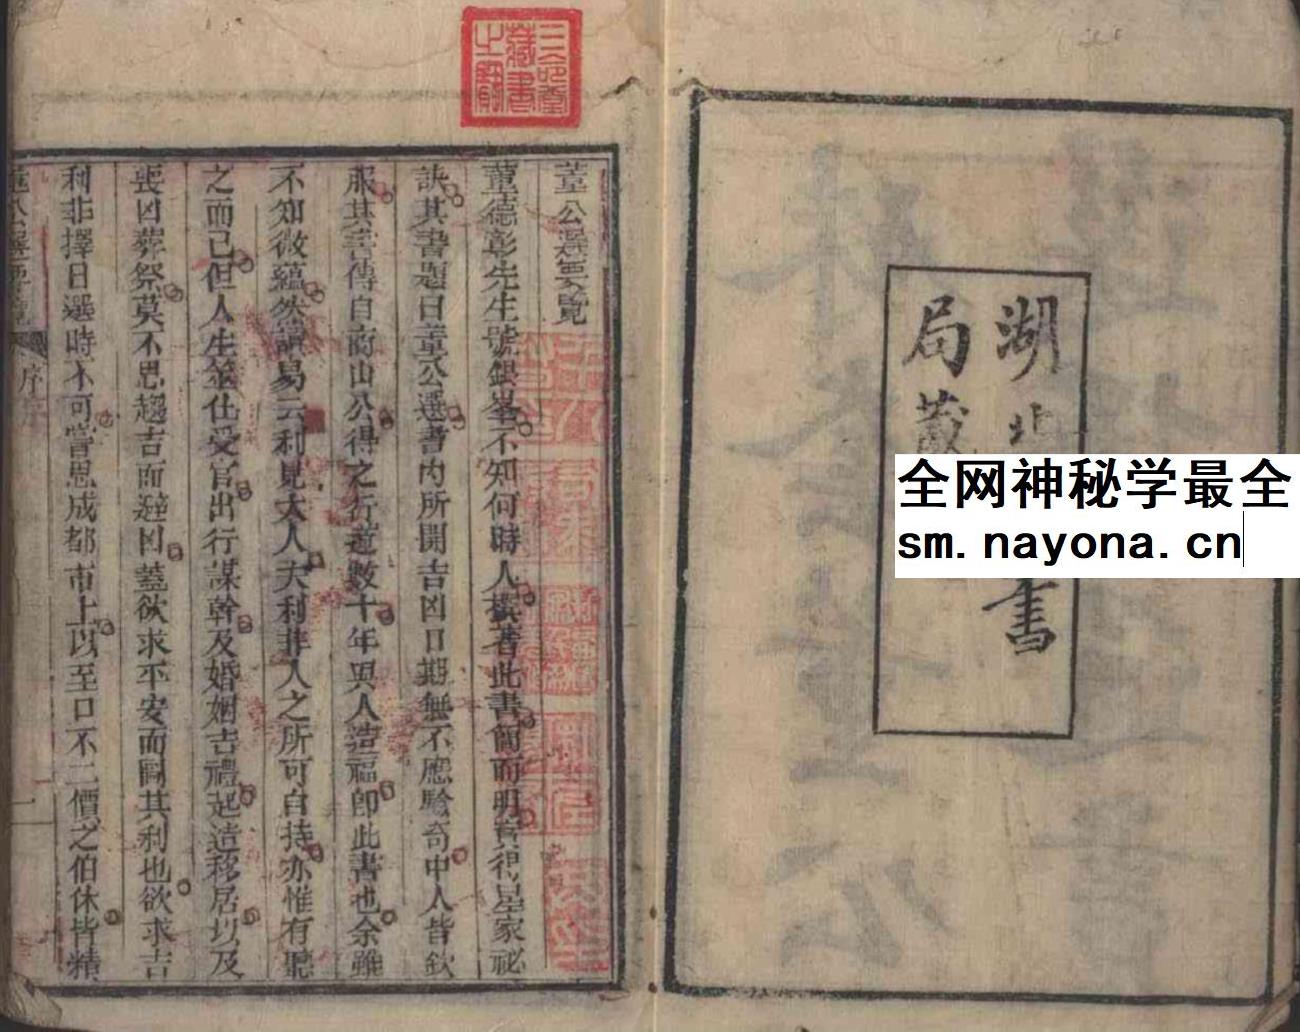 湖北
局藏書
全网神秘学最全
sm.nayona.cn
三命堂
藏書
之寶
董公選要覽
董德彰先生號銀峯不知何時人撰著此書簡而明實得星家祕
訣其書題曰董公選書內所開吉凶日期無不應驗奇中人皆欽
服其書傳自商山公得之行遊數十年與人造福卽此書也余雖
不知微蘊然讀易云利見大人夫利非人之所可自持亦惟有聽
之而已但人生筮仕受官出行謀幹及婚姻吉禮起造移居以及
喪凶葬祭莫不思趨吉而避凶蓋欲求平安而圖其利也欲求吉
利非擇日選時不可嘗思成都市上以至口不二價之伯休皆精
董公選要覽
序
一